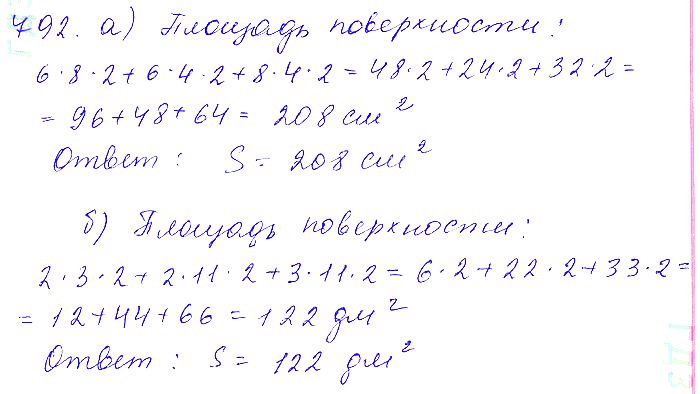 792. а) Площадь поверхности:
6·8·2+6·4·2+8·4·2=48·2+24·2+32·2=
=96+48+64= 208 см²
Ответ: S= 208 см²
б) Площадь поверхности:
2·3·2+2·11·2+3·11·2=6·2+22·2+33·2=
=12+44+66=122 дм²
Ответ: S= 122 дм²
ГДЗ
ГДЗ